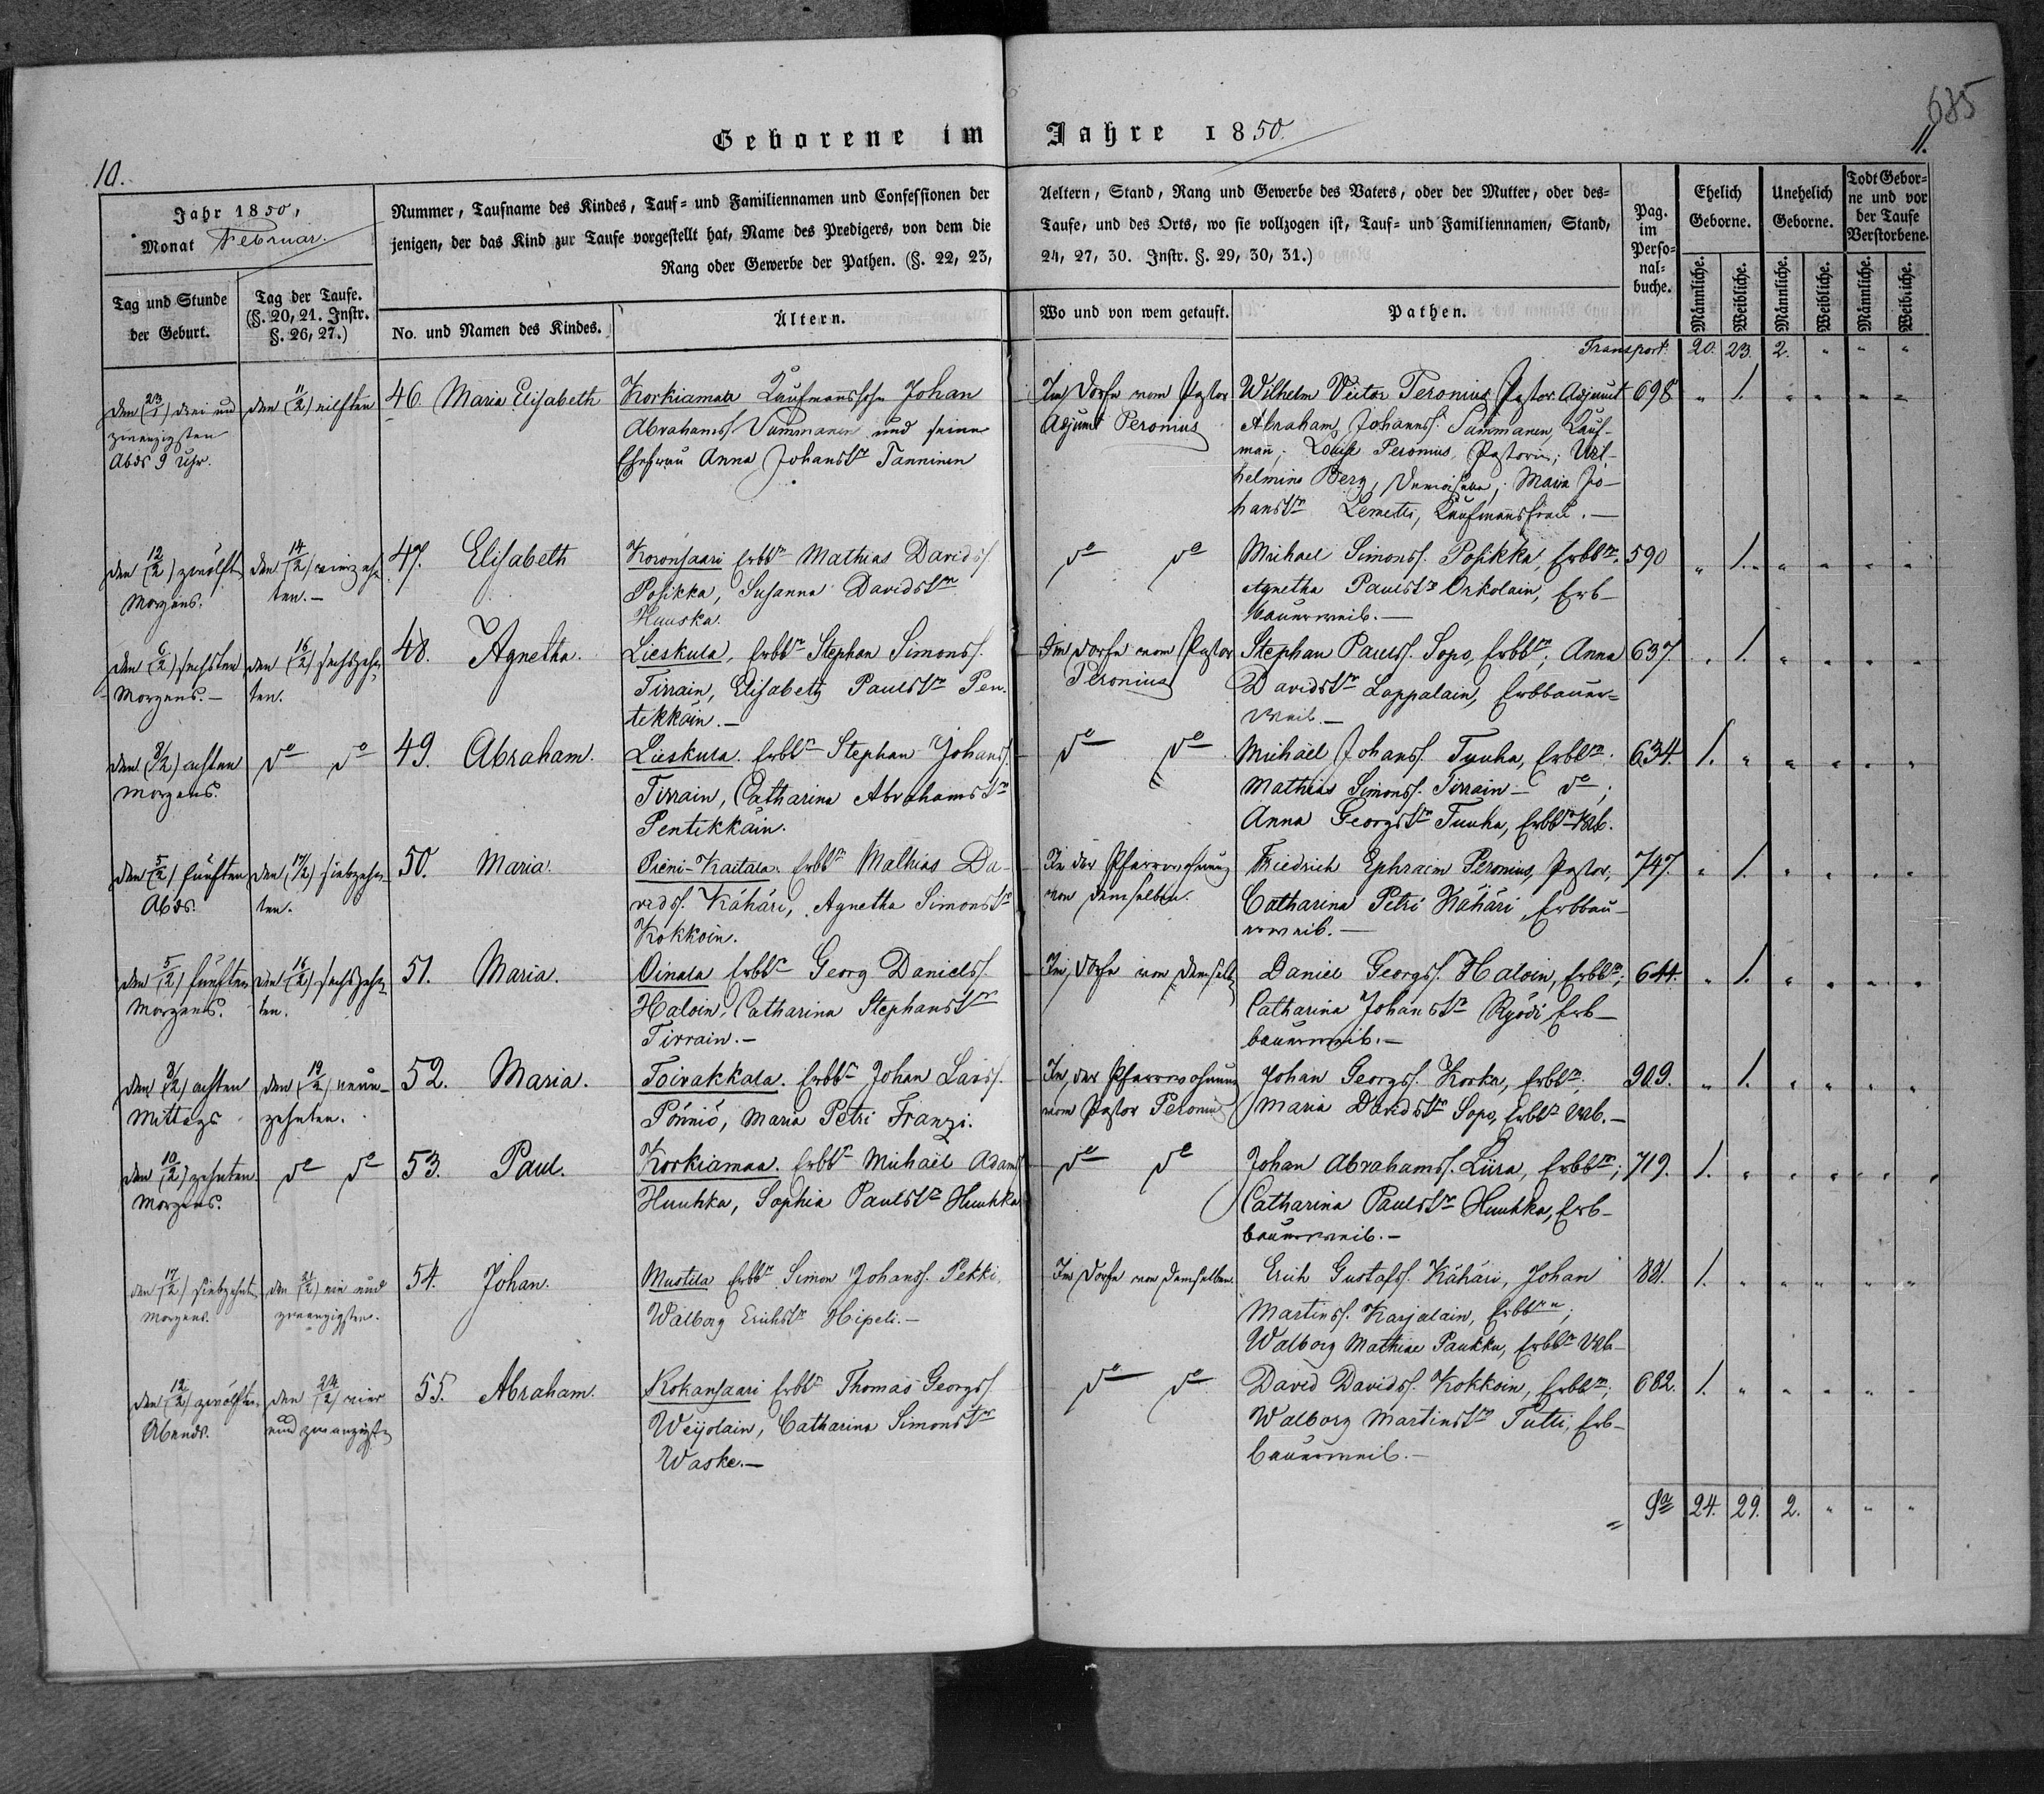 685
Geborene im Jahre 1850.
10.
11.
Jahr 1850,
Monat Februar.
Nummer, Taufname des Kindes, Tauf= und Familiennamen und Confessionen der
jenigen, der das Kind zur Taufe vorgestellt hat, Name des Predigers, von dem die
Rang oder Gewerbe der Pathen. (§. 22, 23,
Aeltern, Stand, Rang und Gewerbe des Vaters, oder der Mutter, oder des=
Taufe, und des Orts, wo sie vollzogen ist, Tauf= und Familiennamen, Stand,
24, 27, 30. Instr. §. 29, 30, 31.)
Pag.
im
Perso=
nal=
buche.
Ehelich
Geborne.
Unehelich
Geborne.
Todt Gebor=
ne und vor
der Taufe
Verstorbene.
Tag und Stunde
der Geburt.
Tag der Taufe.
(§. 20, 21. Instr.
§. 26, 27.)
No. und Namen des Kindes.
Ältern.
Wo und von wem getauft.
Pathen.
Männliche.
Weibliche.
Männliche.
Weibliche.
Männliche.
Weibliche.
Transport. 20. 23. 2. " " "
den (23/1) drei und
zwanzigsten
Abds 9 Uhr.
den (11/2) eilften
46. Maria Elisabeth
Korkiamaa Kaufmannssohn Johan
Abrahamss. Summanen und seine
Ehefrau Anna Johanstr Tanninen
Im Dorfe vom Pastor
Adjunct Peronius
Wilhelm Victor Peronius, Pastor Adjunct
Abraham Johanss. Summanen, Kauf-
mann; Louise Peronius, Pastorin; Wil-
helmine Berg, Demoiselle; Maria Jo-
hanstr Lemetti, Kaufmannsfrau. —
698 " 1. " " " "
den (12/2) zwölft
Morgens.
den (14/2) vierzehn
ten. —
47. Elisabeth
Koronsaari Erbbr Mathias Davidss.
Posikka, Susanna Davidstr
Huuska.
do do
Michael Simonss. Posikka, Erbbr.
Agnetha Paulstr Orkolain, Erb-
bauerweib. —
590 " 1. " " " "
den (6/2) sechsten
Morgens. —
den (16/2) sechszehn
ten.
48. Agnetha.
Lieskula, Erbbr Stephan Simonss.
Tirrain, Elisabeth Paulstr Pen-
tikkäin. —
Im Dorfe vom Pastor
Peronius
Stephan Paulss. Sopo, Erbbr; Anna
Davidstr Lappalain, Erbbauer=
weib. —
637. " 1. " " " "
den (8/2) achten
Morgens.
do do
49. Abraham.
Lieskula. Erbbr Stephan Johanss.
Tirrain, Catharina Abrahamstr
Pentikkäin.
do do
Michaël Johanss. Tuuha, Erbbr.
Mathias Simonss. Tirrain — do;
Anna Georgstr Tuuha, Erbbr Wb.
634. 1. " " " " "
den (5/2) fünften
Abds.
den (17/2) siebzehn
ten.
50. Maria.
Pieni-Kaitala. Erbbr Mathias Da-
vidss. Kähäri, Agnetha Simonstr
Kokkoin.
In der Pfarrwohnung
von demselben.
Friedrich Ephraim Peronius, Pastor;
Catharina Petri Kähäri, Erbbau-
erweib. —
747. " 1. " " " "
den (5/2) fünften
Morgens.
den (16/2) sechszehn
ten.
51. Maria.
Oinala Erbbr Georg Danielss.
Haloin, Catharina Stephanstr
Tirrain. —
Im Dorfe von demselb
Daniel Georgss. Haloin, Erbbr;
Catharina Johanstr Ryödi, Erb-
bauerweib. —
644. " 1. " " " "
den (8/2) achten
Mittags
den (19/2) neun-
zehnten.
52. Maria.
Toivakkala. Erbbr Johan Larss.
Pönniö, Maria Petri Franzi.
In der Pfarrwohnung
vom Pastor Peronius
Johan Georgss. Korka, Erbbr;
Maria Davidstr Sopo, Erbbr Wb. —
909. " 1. " " " "
den (10/2) zehnten
Morgens.
do do
53. Paul.
Korkiamaa. Erbbr Michaël Adams
Huuhka, Sophia Paulstr Huuhka
do do
Johan Abrahamss. Liira, Erbbr;
Catharina Paulstr Huuhka, Erb-
bauerweib. —
719. 1. " " " " "
den (17/2) siebzehnt
Morgens.
den (21/2) ein und
zwanzigsten.
54. Johan.
Mustila Erbbr Simon Johanss. Pekki,
Walborg Erichstr Hipeli. —
Im Dorfe von demselben.
Erich Gustafss. Kähäri, Johan
Martinss. Karjalain, Erbbrn;
Walborg Mathiae Paukku, Erbbr Wb —
881. 1. " " " " "
den (12/2) zwölften
Abends.
den (24/2) vier
und zwanzigste
55. Abraham.
Kokansaari Erbbr Thomas Georgss.
Weijolain, Catharina Simonstr
Waske. —
do do
David Davidss. Kokkoin, Erbbr;
Walborg Martinstr Tutti, Erb-
bauerweib. —
682. 1. " " " " "
Sa 24. 29. 2. " " "